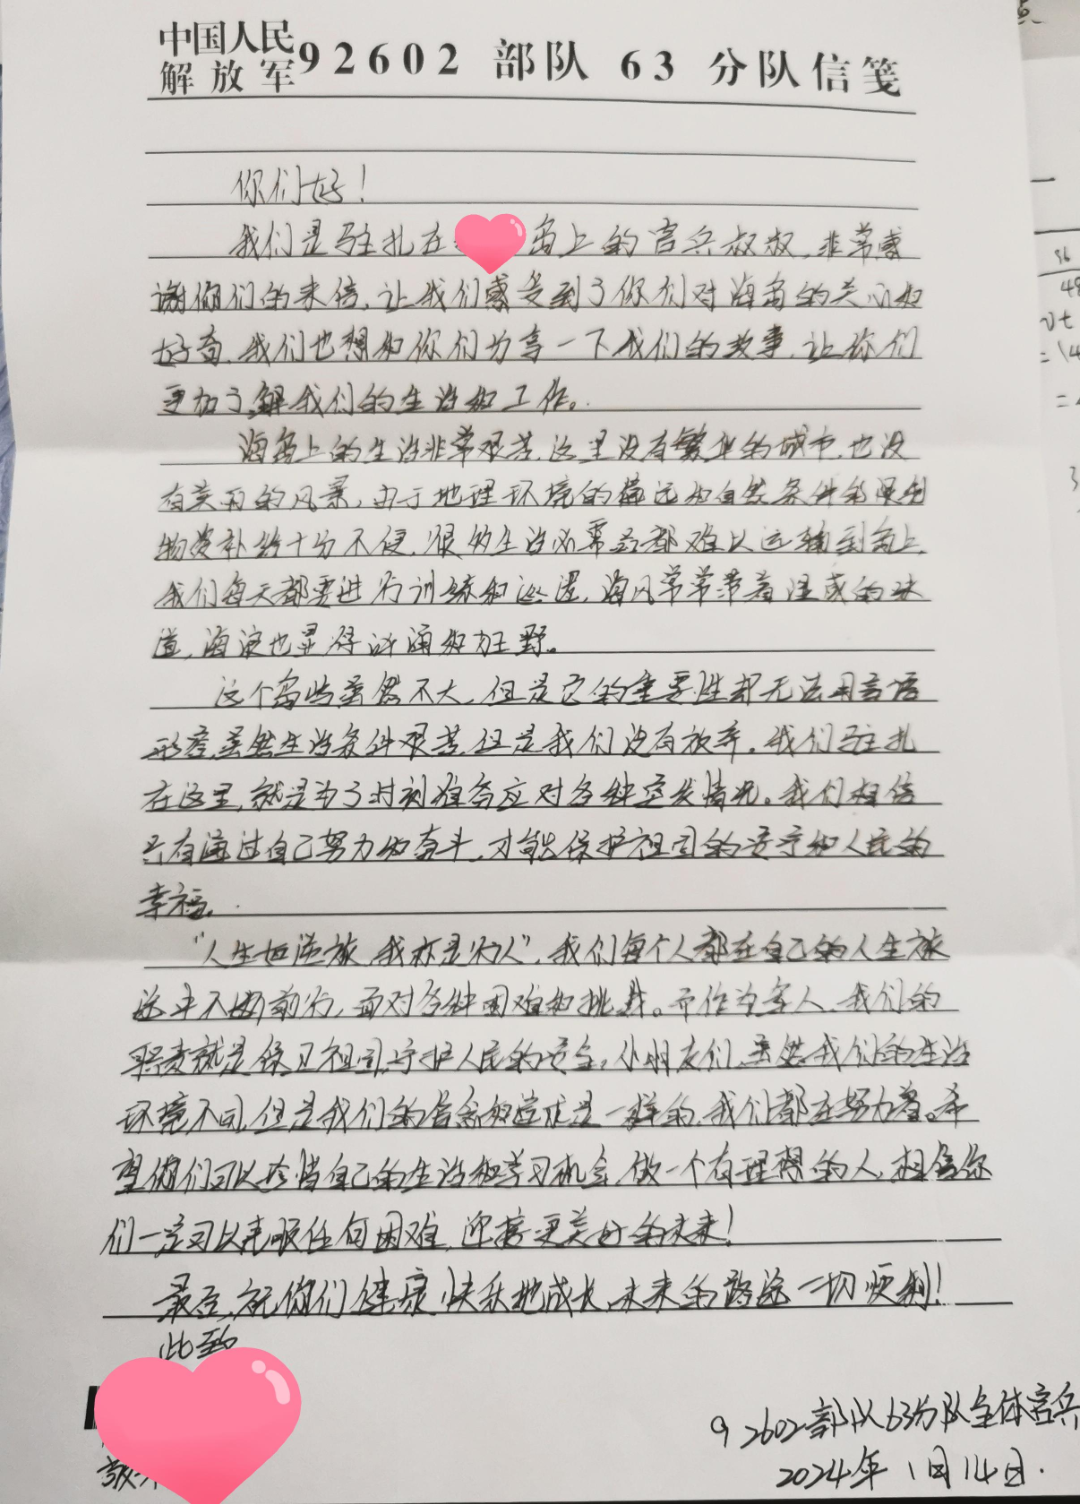 中国人民解放军92602 部队 63 分队信笺
你们好！
我们是驻扎在岛上的官兵叔叔，非常感
谢你们的来信，让我们感受到了你们对海岛的关心和
好奇，我们也想和你们分享一下我们的故事，让你们
更加了解我们的生活和工作。
海岛上的生活非常艰苦，这里没有繁华的城市，也没
有美丽的风景，由于地理环境的偏远和自然条件的限制
物资补给十分不便，很多生活必需品都难以运输到岛上，
我们每天都要进行训练和巡逻，海风常常带着湿咸的味
道，海浪也显得汹涌和狂野。
这个岛屿虽然不大，但是它的重要性却无法用言语
形容，虽然生活条件艰苦，但是我们没有放弃。我们驻扎
在这里，就是为了时刻准备应对各种突发情况。我们相信
只有通过自己努力和奋斗，才能保护祖国的安宁和人民的
幸福。
“人生如逆旅，我亦是行人”，我们每个人都在自己的人生旅
途中不断前行，面对各种困难和挑战。而作为军人，我们的
职责就是保卫祖国，守护人民的安全，小朋友们，虽然我们的生活
环境不同，但是我们的信念和追求是一样的，我们都在努力着。希
望你们可以珍惜自己的生活和学习机会，做一个有理想的人，相信你
们一定可以克服任何困难，迎接更美好的未来！
最后，祝你们健康、快乐地成长，未来的路途一切顺利！
此致
敬
92602部队63分队全体官兵
2024年1月14日.